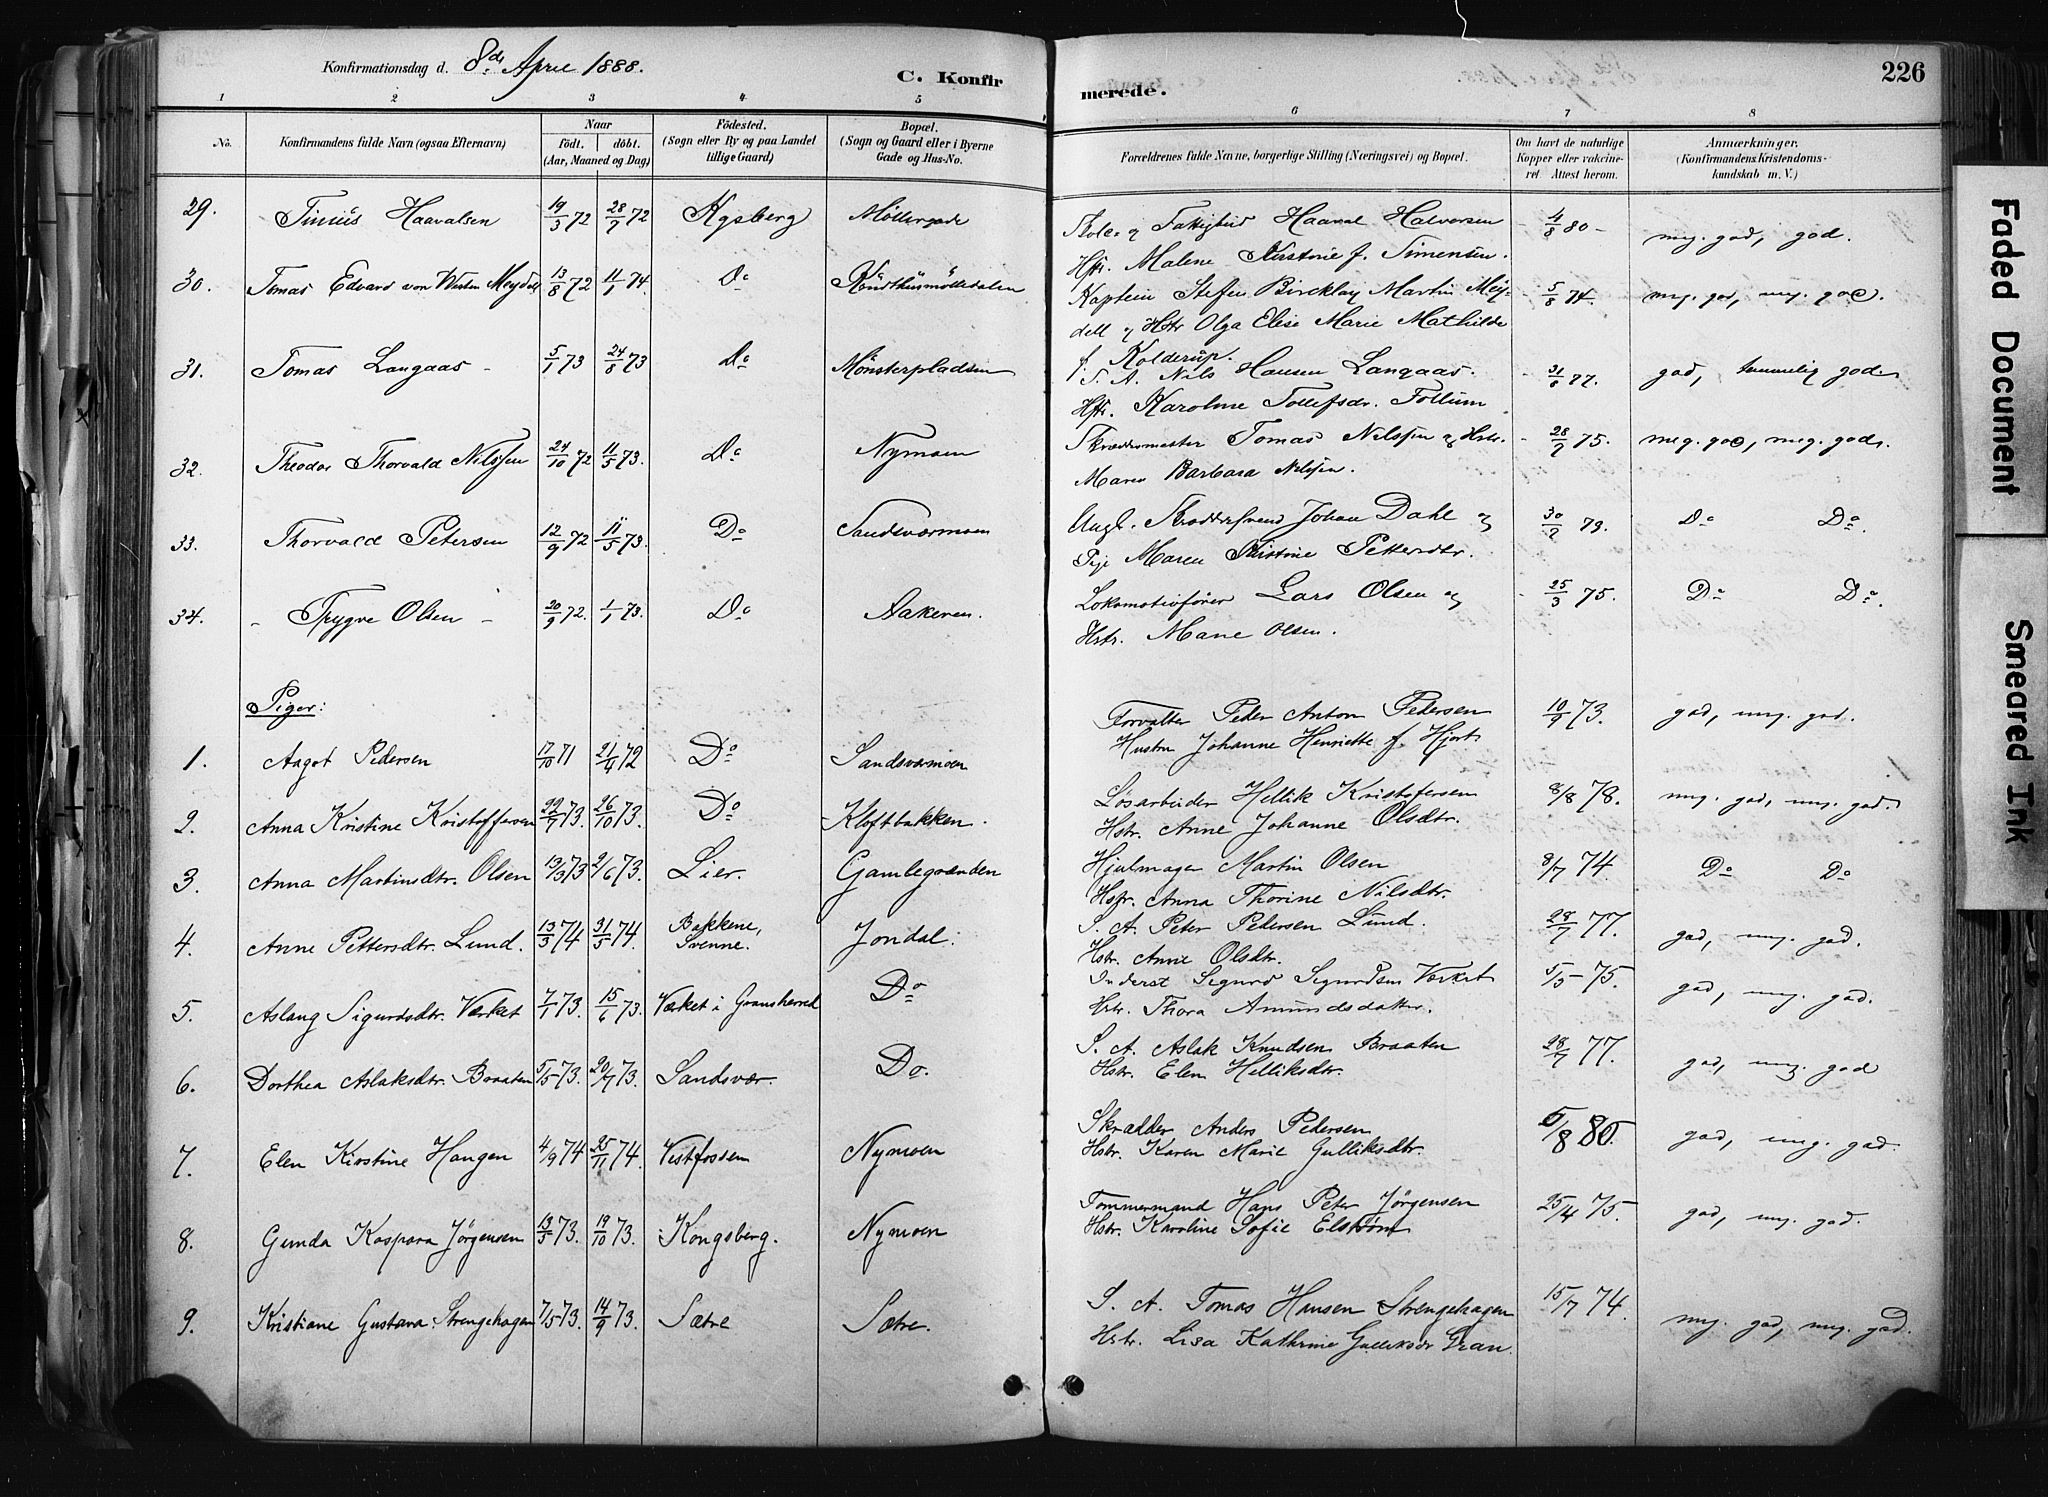 Konfirmationsdag d. 8de April 1888.
C. Konfirmerede.
226
1 2 3 4 5 6 7 8
No.
Konfirmandens fulde Navn (ogsaa Efternavn)
Naar
födt. döbt.
(Aar, Maaned og Dag)
Födested.
(Sogn eller By og paa Landet tillige Gaard)
Bopæl.
(Sogn og Gaard eller i Byerne Gade og Hus-No.
Forældrenes fulde Navne, borgerlige Stilling (Næringsvei) og Bopæl.
Om havt de naturlige Kopper eller vakcineret. Attest herom.
Anmærkninger.
(Konfirmandens Kristendomskundskab m. V.)
29. Tinius Haavalsen 19/3 72 28/7 72 Kgsberg Møllergade
Haaval Halversen
Hstr. Malene Kirstine f. Simensen. 4/8 80 meg. god, god.
30. Tomas Edvard von Westen Meydell 13/8 72 11/1 74. Do
Kaptein Steffen Bircklay Martin Meydell og Hstr Olga Elise Marie Mathilde
f. Kolderup. 5/8 74. meg. god, meg. god.
31. Tomas Langaas 5/1 73 24/8 73 Do Mønsterpladsen
S. A. Nils Hansen Langaas.
Hstr. Karoline Tollefsdr. Follum 31/6 77. god, temmelig god
32. Theodor Thorvald Nilssen 24/10 72 11/5 73. Do Nymoen
Skræddermester Tomas Nilssen og Hstr.
Maren Barbara Nilssen. 28/2 75. meg. god, meg. god.
33. Thorvald Petersen 12/9 72 11/5 73. Do Sandsværmoen
Ungk. Skræddersvend Johan Dahl og
Pige Maren Kristine Pettersdtr. 30/2 73. Do Do.
34. Trygve Olsen 20/9 72. 1/1 73. Do Aakeren.
Lokomotivfører Lars Olsen og
Hstr. Marie Olsen. 25/3 75. Do Do.
Piger:
1. Aagot Pedersen 17/10 71 21/4 72 Do Sandsværmoen
Forvalter Peder Anton Pedersen
Hustru Johanne Henriette f. Hjort 10/9 73. god, meg. god.
2. Anna Kristine Kristoffersen 22/7 73. 26/10 73. Do Kloftbakken.
Løsarbeider Hellik Kristofersen
Hstr. Anne Johanne Olsdtr. 8/8 78. meg. god, meg. god.
3. Anna Martinsdtr. Olsen 13/3 73 2/6 73. Lier. Gamlegrænden
Hjulmager Martin Olsen
Hstr. Anna Thorine Nilsdtr. 8/7 74 Do Do
4. Anne Pettersdtr. Lund. 13/3 74 31/5 74. Bakkene, Svenne. Jondal.
S. A. Peter Pedersen Lund.
Hstr. Anne Olsdtr. 28/7 77. god, meg. god.
5. Aslaug Sigurdsdtr. Værket 7/1 73. 15/6 73. Værket i Gransherred Do
Inderst Sigurd Sigurdsen Værket
Hstr. Thora Amundsdatter. 5/5 75. god, meg. god.
6. Dorthea Aslaksdtr. Braaten 5/5 73. 20/7 73. Sandsvær. Do.
S. A. Aslak Knudsen Braaten
Hstr. Elen Helliksdtr. 28/7 77. god, meg. god
7. Elen Kirstine Haugen 4/9 74 25/11 74. Vestfossen Nymoen
Skrædder Anders Pedersen
Hstr. Karen Marie Gulliksdtr. 5/8 80. god, meg. god.
8. Gunda Kaspara Jørgensen 13/5 73. 19/10 73. Kongsberg. Nymoen
Tømmermand Hans Peter Jørgensen
Hstr. Karoline Sofie Elstrøm 25/4 75. god, meg. god.
9. Kristiane Gustava Strengehagen 7/5 73. 14/9 73. Sætre Sætre.
S. A. Tomas Hansen Strengehagen
Hstr. Lisa Kathrine Gulliksdr Gran. 15/7 74. meg. god, meg. god.
Faded Document
Smeared Ink